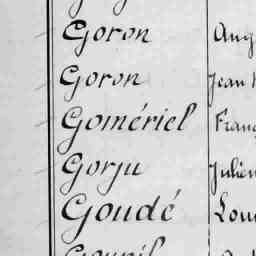 Goron Aug
Goron Jean
Gomériel Franç
Gorju Julien
Goudé Lou